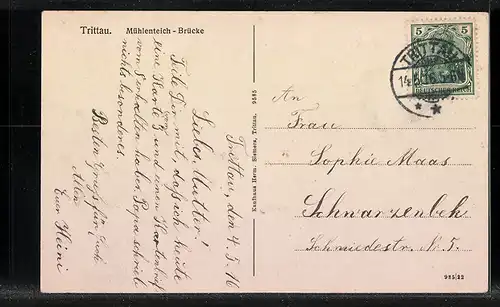 Trittau. Mühlenteich - Brücke
Trittau, den 4.5.16
Liebe Mutter!
Teile Dir mit, daß ich heute
eine Karte u. einen Kartenbrief
vom 5. erhalten habe. Papa schrieb
nichts besonderes.
Besten Gruß für Euch
Alle
Euer Heini
9585
Kaufhaus Herm. Siemers, Trittau.
5 5
DEUTSCHES REICH
TRITTAU
An
Frau
Sophie Maas
Schwarzenbek
Schmiedestr. N. 5.
985/22